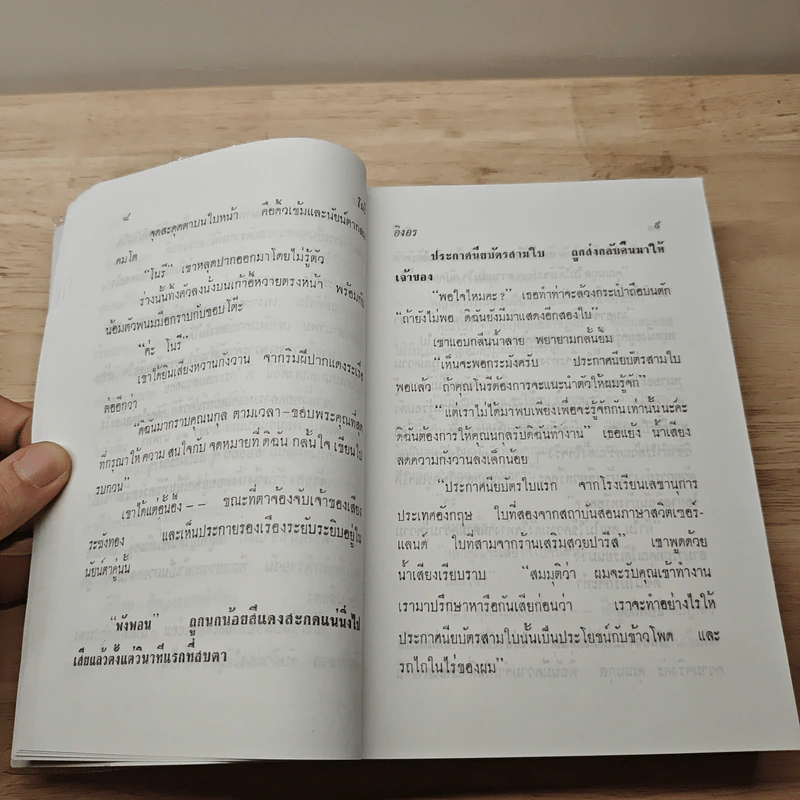 ๘
จุดสะดุดตาบนใบหน้า คือคิ้วเข้มและนัยน์ตากลม
คมโต
"โนรี" เขาหลุดปากออกมาโดยไม่รู้ตัว
ร่างนั้นทิ้งตัวลงนั่งบนเก้าอี้หวายตรงหน้า พร้อมกับ
น้อมตัวพนมมือกราบกับขอบโต๊ะ
"ค่ะ โนรี"
เขาได้ยินเสียงหวานกังวาน จากริมฝีปากแดงระเรื่อ
ต่ออีกว่า
"ดิฉันมากราบคุณนกุล ตามเวลา-ขอบพระคุณที่สุด
ที่กรุณาให้ความสนใจกับจดหมายที่ดิฉัน กลั้นใจ เขียนไป
รบกวน"
เขาได้แต่อึ้นอึ้ง -- ขณะที่ตาจ้องจับเจ้าของเสียง
ระฆังทอง และเห็นประกายรองเรืองระยับระยิบอยู่ใน
นัยน์ตาคู่นั้น
"พังพอน" ถูกนกน้อยสีแดงสะกดแน่นิ่งไป
เสียแล้วตั้งแต่วินาทีแรกที่สบตา
อิงอร
๙
ประกาศนียบัตรสามใบ ถูกส่งกลับคืนมาให้
เจ้าของ
"พอใจไหมคะ?" เธอทำท่าจะล้วงกระเป๋าถือบนตัก
"ถ้ายังไม่พอ ดิฉันยังมีมาแสดงอีกสองใบ"
เขาแอบกลืนน้ำลาย พยายามกลั้นยิ้ม
"เห็นจะพอกระมังครับ ประกาศนียบัตรสามใบ
พอแล้ว ถ้าคุณโนรีต้องการจะแนะนำตัวให้ผมรู้จัก"
"แต่เราไม่ได้มาพบเพียงเพื่อจะรู้จักกันเท่านั้นนะคะ
ดิฉันต้องการให้คุณนกุลรับดิฉันทำงาน" เธอแย้ง น้ำเสียง
ลดความกังวานลงเล็กน้อย
"ประกาศนียบัตรใบแรก จากโรงเรียนเลขานุการ
ประเทศอังกฤษ ใบที่สองจากสถาบันสอนภาษาสวิตเซอร์-
แลนด์ ใบที่สามจากร้านเสริมสวยปารีส" เขาพูดด้วย
น้ำเสียงเรียบราบ "สมมุติว่า ผมจะรับคุณเข้าทำงาน
เรามาปรึกษาหารือกันเสียก่อนว่า เราจะทำอย่างไรให้
ประกาศนียบัตรสามใบนั้นเป็นประโยชน์กับข้าวโพด และ
รถไถในไร่ของผม"